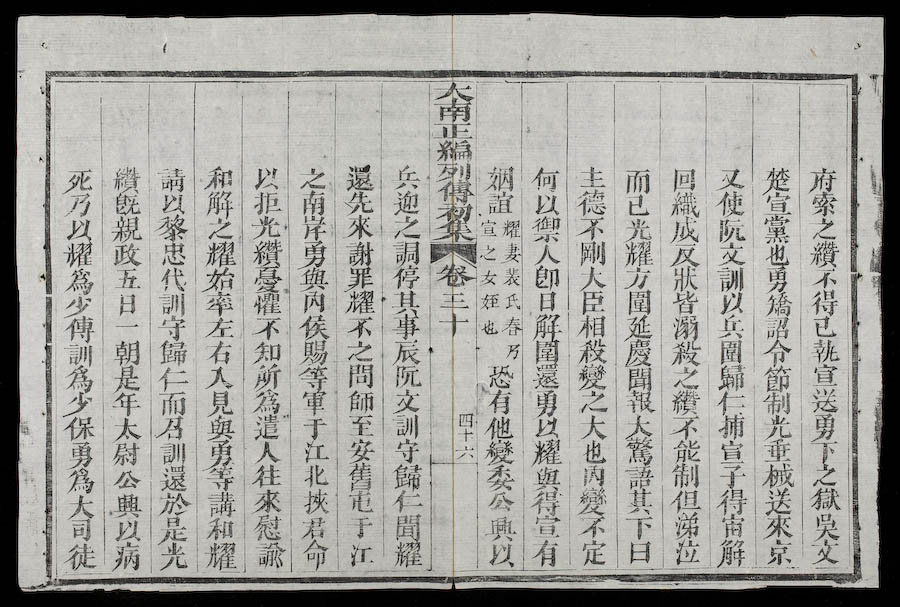 府索之纘不得已執宣送勇下之獄吳文
楚宣黨也勇矯詔令節制光垂械送來京
又使阮文訓以兵圍歸仁捕宣子得宙解
回織成反狀皆溺殺之纘不能制但涕泣
而已光耀方圍延慶聞報大驚語其下曰
主德不剛大臣相殺變之大也內變不定
何以禦人卽日解圍還勇以耀與得宣有
姻誼耀妻裴氏春乃宣之女姪也恐有他變委公興以
大南正編列傳初集 卷三十 四十六
兵迎之調停其事辰阮文訓守歸仁聞耀
還先來謝罪耀不之問師至安舊屯于江
之南岸勇與內侯賜等軍于江北挾君命
以拒光纘憂懼不知所爲遣人往來慰諭
和解之耀始率左右入見與勇等講和耀
請以黎忠代訓守歸仁而召訓還於是光
纘旣親政五日一朝是年太尉公興以病
死乃以耀爲少傅訓爲少保勇爲大司徒